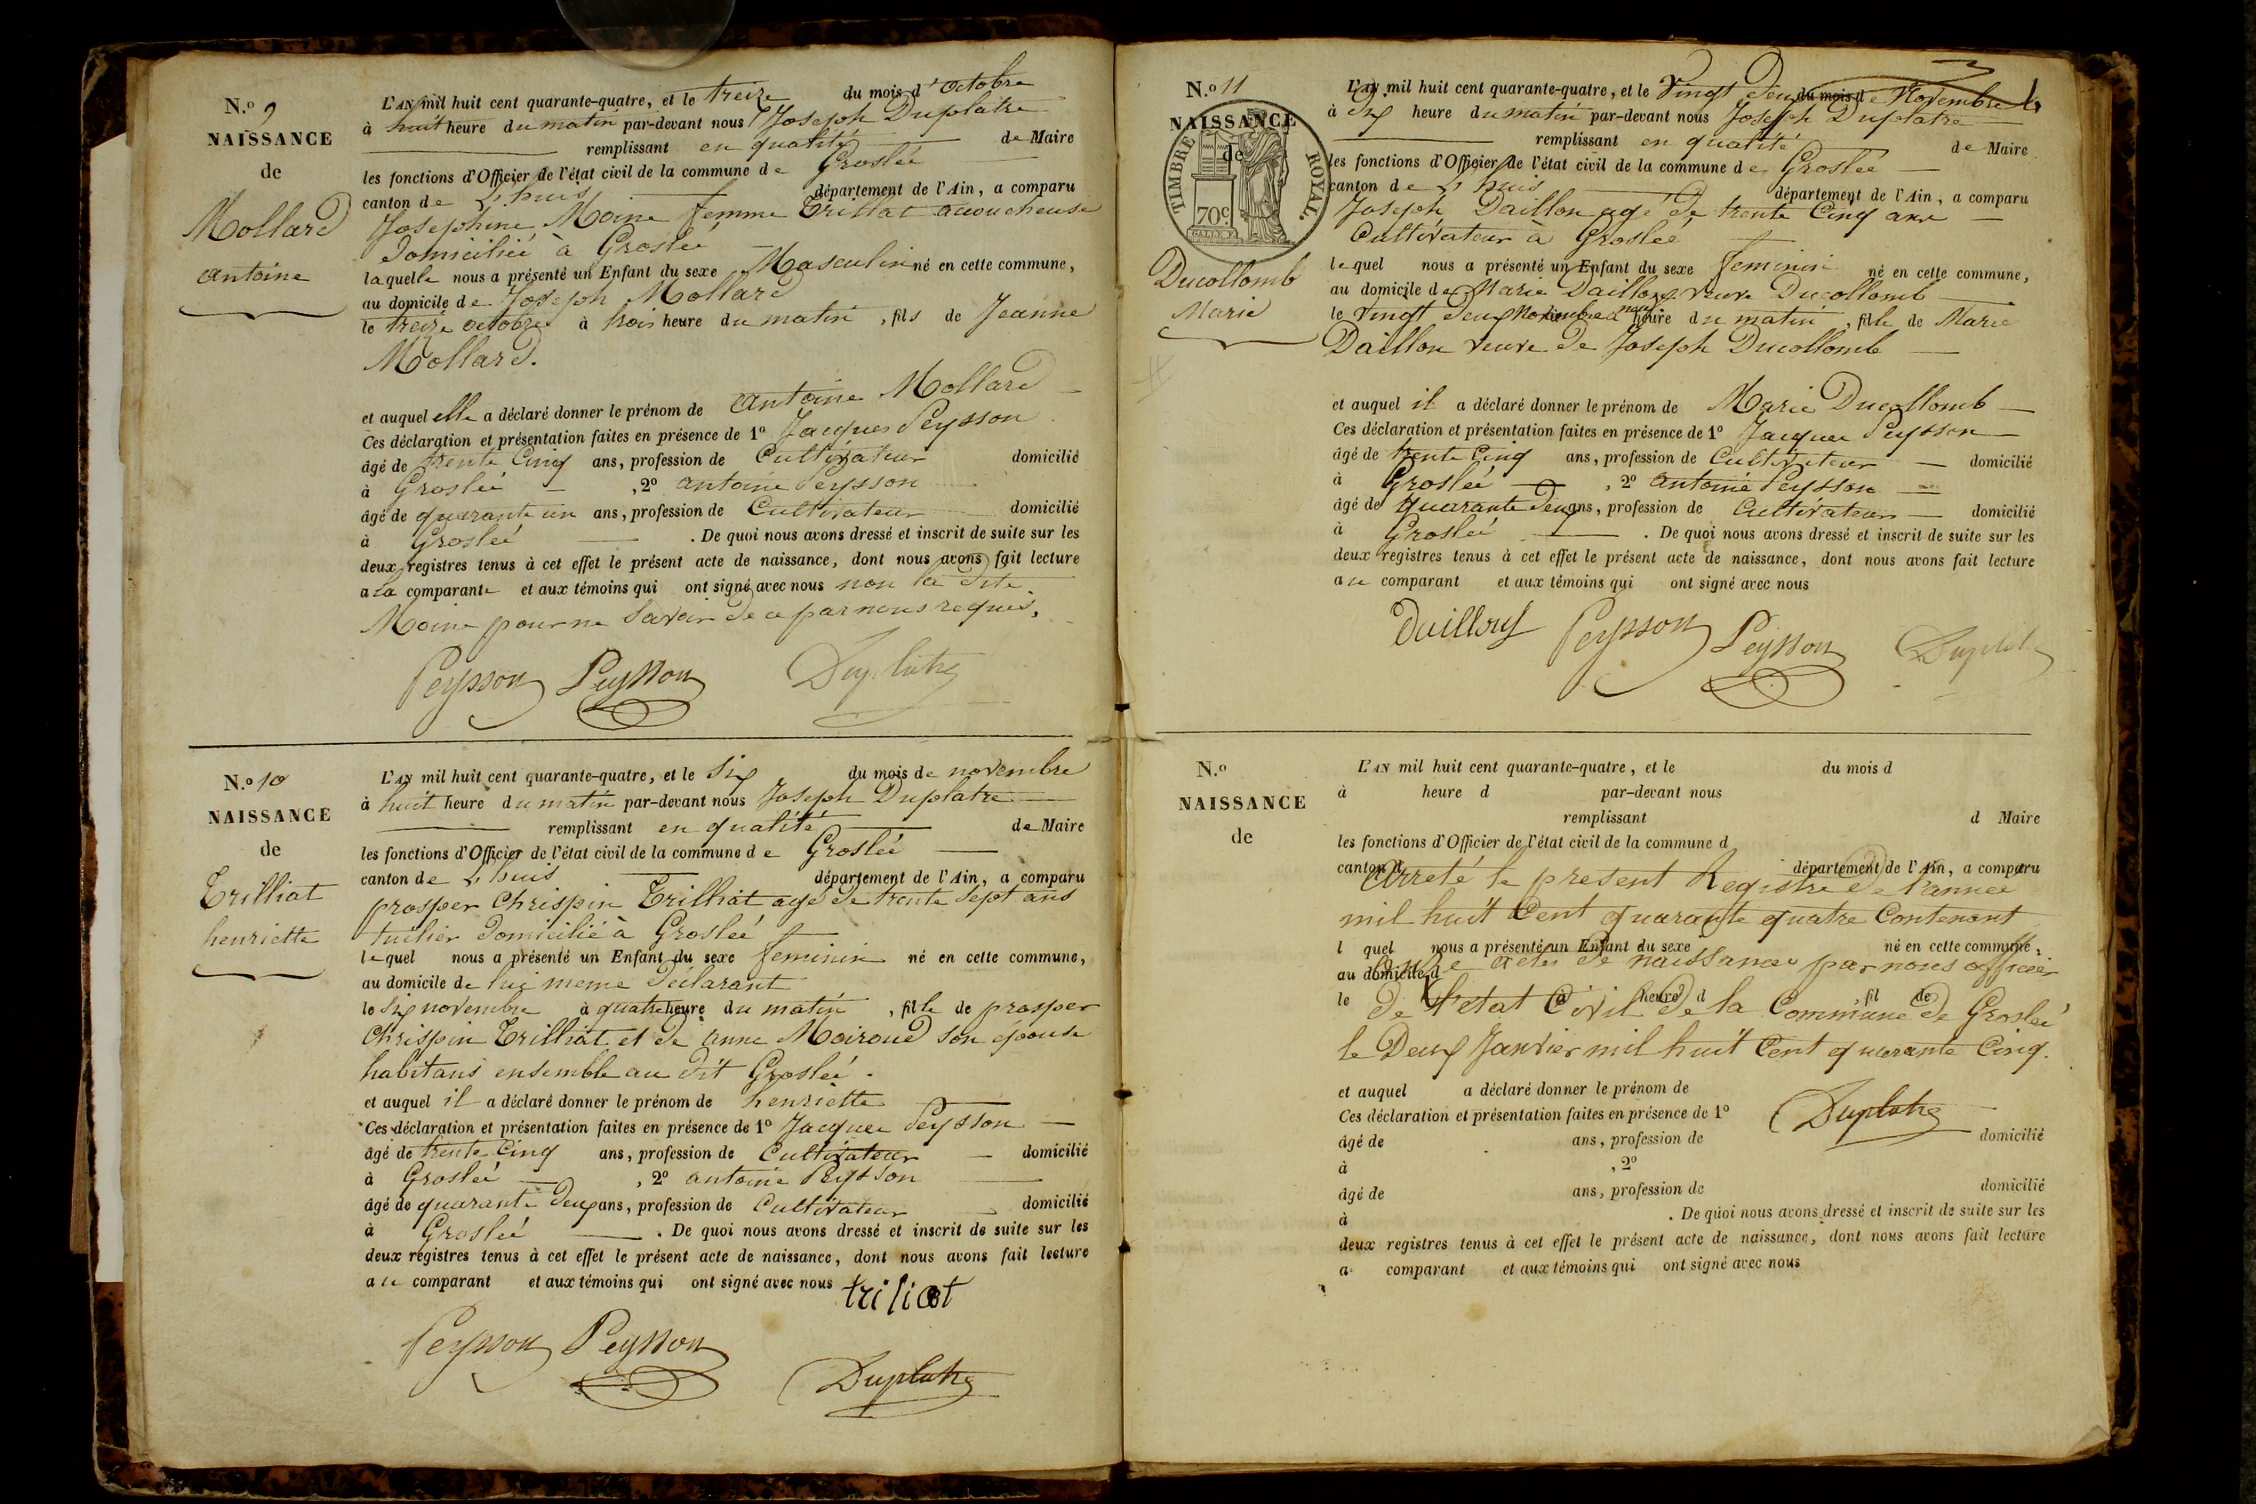 N.º 9
NAISSANCE
de
Mollard
antoine
L'AN mil huit cent quarante-quatre, et le treize du mois d'octobre
à huit heure du matin par-devant nous Joseph Duplatre
remplissant en qualité de Maire
les fonctions d'Officier de l'état civil de la commune de Groslée
canton de L'huis département de l'Ain, a comparu
Josephine Moine femme Trillat acoucheuse
domiciliée à Groslée
laquelle nous a présenté un Enfant du sexe Masculin né en cette commune,
au domicile de Joseph Mollard
le treize octobre à trois heure du matin, fils de Jeanne
Mollard.
et auquel elle a déclaré donner le prénom de antoine Mollard
Ces déclaration et présentation faites en présence de 1º Jacques Peysson
âgé de trente Cinq ans, profession de Cultivateur domicilié
à Groslée, 2º antoine Peysson
âgé de quarante un ans, profession de Cultivateur domicilié
à Groslée. De quoi nous avons dressé et inscrit de suite sur les
deux registres tenus à cet effet le présent acte de naissance, dont nous avons fait lecture
a la comparante et aux témoins qui ont signé avec nous non la dite
Moine pour ne savoir de ce par nous requis.
Peysson Peysson Duplatre
N.º 10
NAISSANCE
de
Trilliat
henriette
L'AN mil huit cent quarante-quatre, et le Six du mois de novembre
à huit heure du matin par-devant nous Joseph Duplatre
remplissant en qualité de Maire
les fonctions d'Officier de l'état civil de la commune de Groslée
canton de L'huis département de l'Ain, a comparu
prosper Chrispin Trilliat agé de trente Sept ans
tuilier domicilié à Groslée
lequel nous a présenté un Enfant du sexe feminin né en cette commune,
au domicile de lui meme déclarant
le Six novembre à quatre heure du matin, fille de prosper
Chrispin Trilliat et de anne Moiroud son épouse
habitans ensemble au dit Groslée.
et auquel il a déclaré donner le prénom de henriette
Ces déclaration et présentation faites en présence de 1º Jacques Peysson
âgé de trente Cinq ans, profession de Cultivateur domicilié
à Groslée, 2º antoine Peysson
âgé de quarante deux ans, profession de Cultivateur domicilié
à Groslée. De quoi nous avons dressé et inscrit de suite sur les
deux registres tenus à cet effet le présent acte de naissance, dont nous avons fait lecture
au comparant et aux témoins qui ont signé avec nous triliat
Peysson Peysson Duplatre
N.º 11
NAISSANCE
de
TIMBRE ROYAL.
70c
Ducollomb
Marie
L'AN mil huit cent quarante-quatre, et le Vingt deux du mois de Novembre
à dix heure du matin par-devant nous Joseph Duplatre
remplissant en qualité de Maire
les fonctions d'Officier de l'état civil de la commune de Groslée
canton de L'huis département de l'Ain, a comparu
Joseph Daillon agé de trente Cinq ans
Cultivateur à Groslée
lequel nous a présenté un Enfant du sexe feminin né en cette commune,
au domicile de Marie Daillon veuve Ducollomb
le Vingt deux Novembre à heure du matin, fille de Marie
Daillon veuve de Joseph Ducollomb
et auquel il a déclaré donner le prénom de Marie Ducollomb
Ces déclaration et présentation faites en présence de 1º Jacques Peysson
âgé de trente Cinq ans, profession de Cultivateur domicilié
à Groslée, 2º antoine Peysson
âgé de quarante deux ans, profession de Cultivateur domicilié
à Groslée. De quoi nous avons dressé et inscrit de suite sur les
deux registres tenus à cet effet le présent acte de naissance, dont nous avons fait lecture
au comparant et aux témoins qui ont signé avec nous
Peysson Peysson Duplatre
N.º
NAISSANCE
de
L'AN mil huit cent quarante-quatre, et le du mois d
à heure d par-devant nous
remplissant d Maire
les fonctions d'Officier de l'état civil de la commune d
canton d département de l'Ain, a comparu
Arreté le present Registre de l'année
mil huit Cent quarante quatre Contenant
l quel nous a présenté un Enfant du sexe né en cette commune,
onze actes de naissances par nous officier
au domicile d
le à heure d fil de
de l'etat Civil de la Commune de Groslée
le Deux Janvier mil huit Cent quarante Cinq.
et auquel a déclaré donner le prénom de
Ces déclaration et présentation faites en présence de 1º Duplatre
âgé de ans, profession de domicilié
à , 2º
âgé de ans, profession de domicilié
à . De quoi nous avons dressé et inscrit de suite sur les
deux registres tenus à cet effet le présent acte de naissance, dont nous avons fait lecture
a comparant et aux témoins qui ont signé avec nous